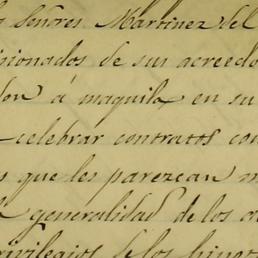 Señores Martinez del
sionados de sus acreedo
á maquila en su
celebrar contratos con
que les parezcan m
generalidad de los
privilegios de los